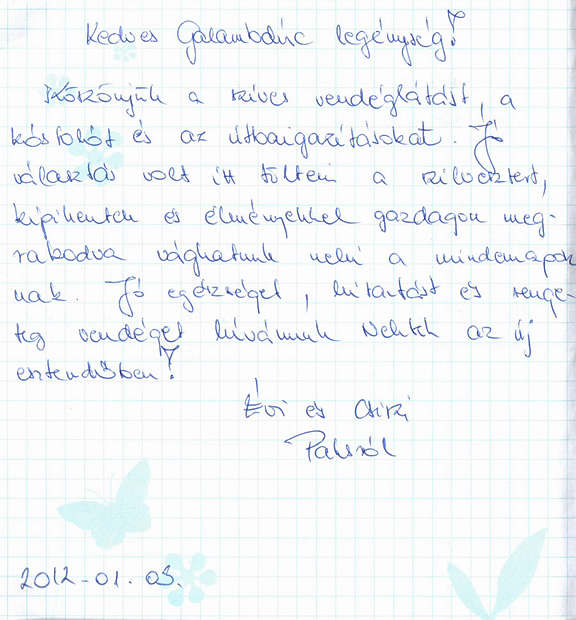 Kedves Galambdúc legénység!
Köszönjük a szíves vendéglátást, a
kóstolót és az útbaigazításokat. Jó
választás volt itt tölteni a szilvesztert,
kipihenten és élményekkel gazdagon meg-
rakodva vághatunk neki a mindennapok
nak. Jó egészséget, kitartást és renge-
teg vendéget kívánunk Nektek az új
esztendőben!
Évi és Csizi
Paksról
2012-01.03.